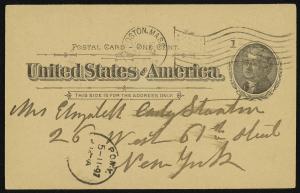 BOSTON, MASS.
POSTAL CARD – ONE CENT.
1
United States of America.
THIS SIDE IS FOR THE ADDRESS ONLY.
Mrs Elizabeth Cady Stanton
26 West 61th Street
New York
5-11-97